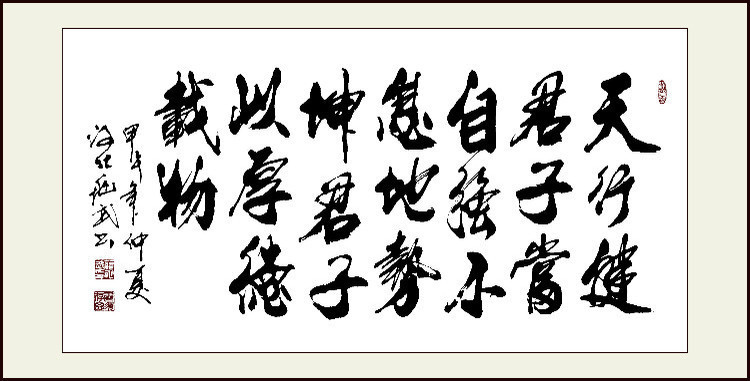 天行健
君子當
自強不
息地勢
坤君子
以厚德
載物
甲午年仲夏
武书